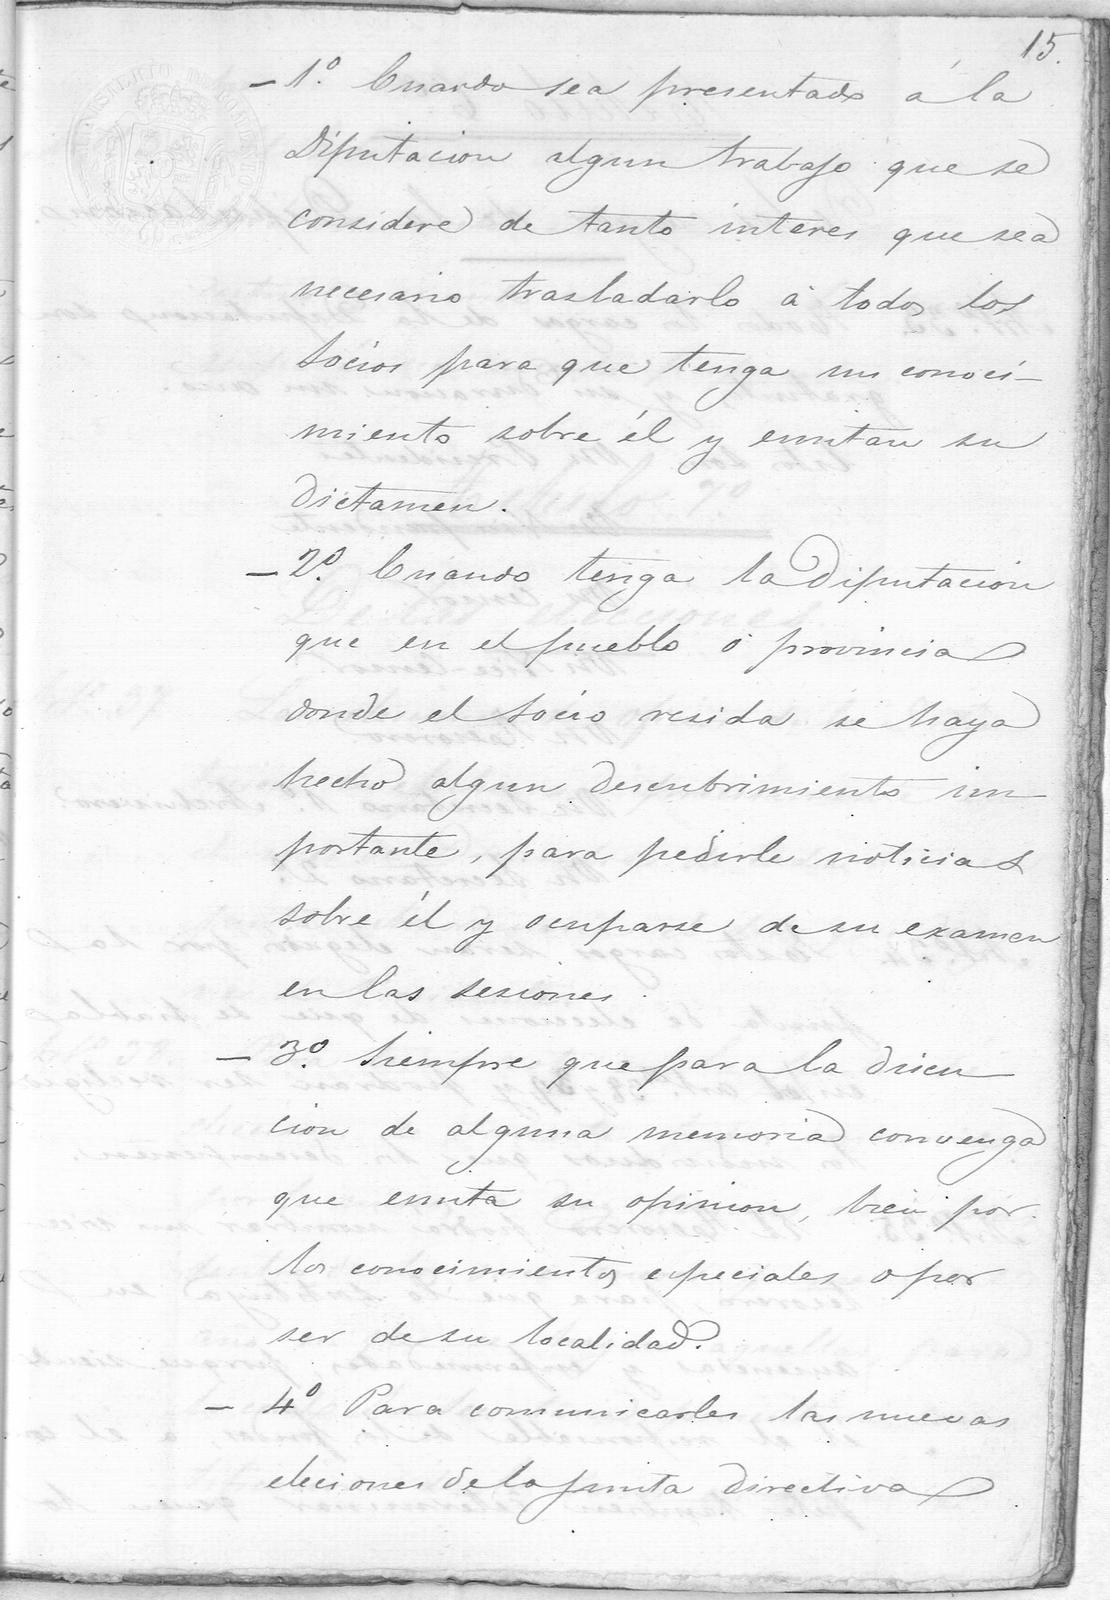 15.
- 1.º Cuando sea presentado á la
Diputacion algun trabajo que se
considere de tanto interes que sea
necesario trasladarlo á todos los
socios para que tenga un conoci-
miento sobre él y emitan su
dictamen.
- 2.º Cuando tenga la Diputacion
que en el pueblo ó provincia
donde el socio resida se haya
hecho algun descubrimiento im
portante, para pedirle noticias
sobre él y ocuparse de su examen
en las sesiones.
- 3.º Siempre que para la discu
cion de alguna memoria convenga
que emita su opinion, bien por
los conocimientos especiales o por
ser de su localidad.
- 4º Para comunicarles las nuevas
eleciones de la junta directiva